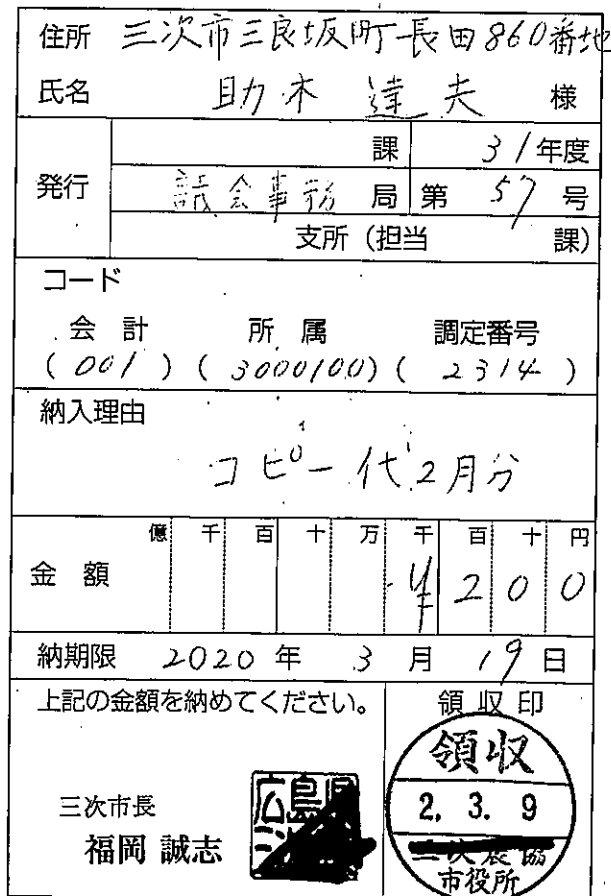 住所 三次市三良坂町長田860番地
氏名 助木達夫 様
発行
課 31年度
議会事務局 第57号
支所(担当 課)
コード
会計 所属 調定番号
(001)(3000100)(2314)
納入理由
コピー代2月分
億 千 百 十 万 千 百 十 円
金額 ¥200
納期限 2020年3月19日
上記の金額を納めてください。
領収印
三次市長
福岡 誠志
広島県
領収
2. 3. 9
市役所